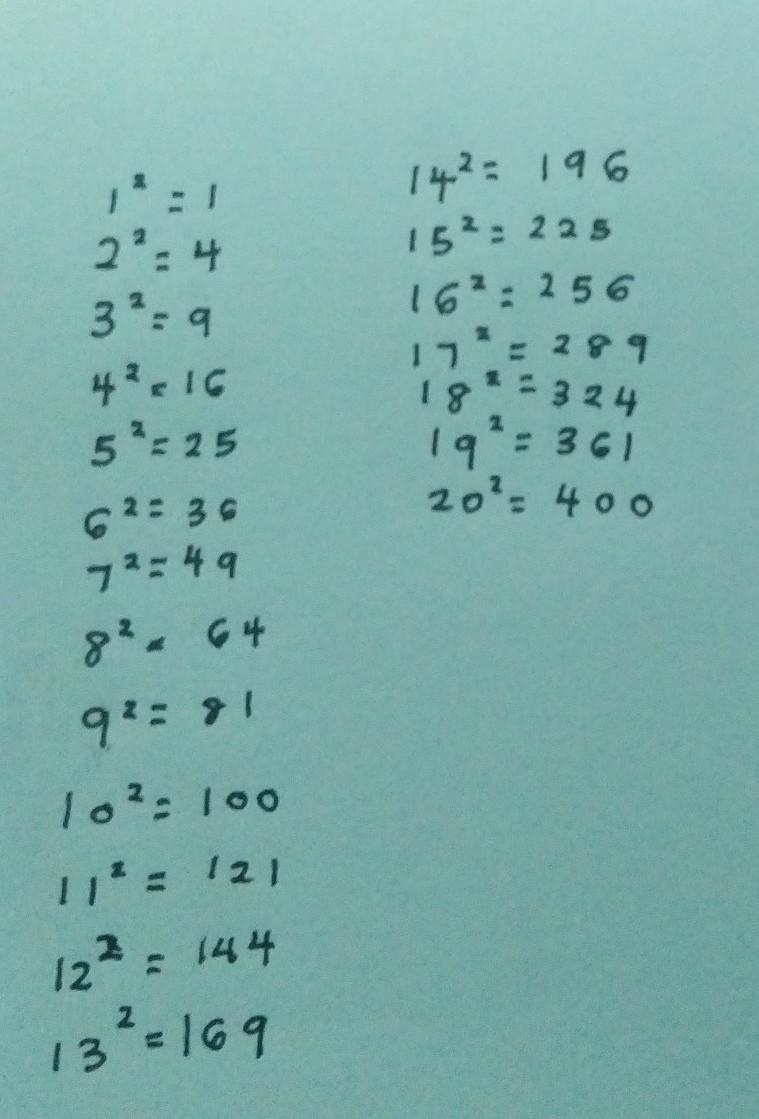 1² = 1
2² = 4
3² = 9
4² = 16
5² = 25
6² = 36
7² = 49
8² = 64
9² = 81
10² = 100
11² = 121
12² = 144
13² = 169
14² = 196
15² = 225
16² = 256
17² = 289
18² = 324
19² = 361
20² = 400